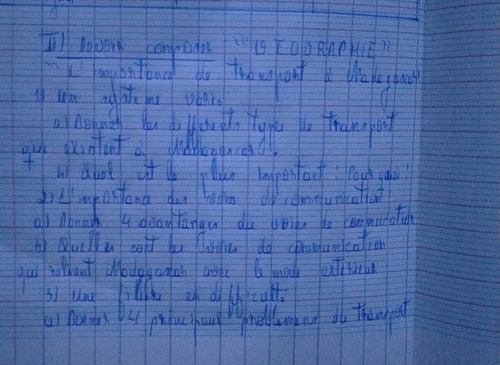 II) Devoir composer "GEOGRAPHIE"
"L'importance de transport à Madagascar
1) un système varié
a) Donner les différents types de transport
que existent à Madagascar.
b) Quel est le plus important? Pourquoi?
2) L'importance des voies de communication
a) Donner 4 avantages de voies de commucation
b) Quelles sont les voies de communication
qui relient Madagascar avec le monde extérieur
3) une filière en difficulté
a) Donner 4 principaux problèmes de transport